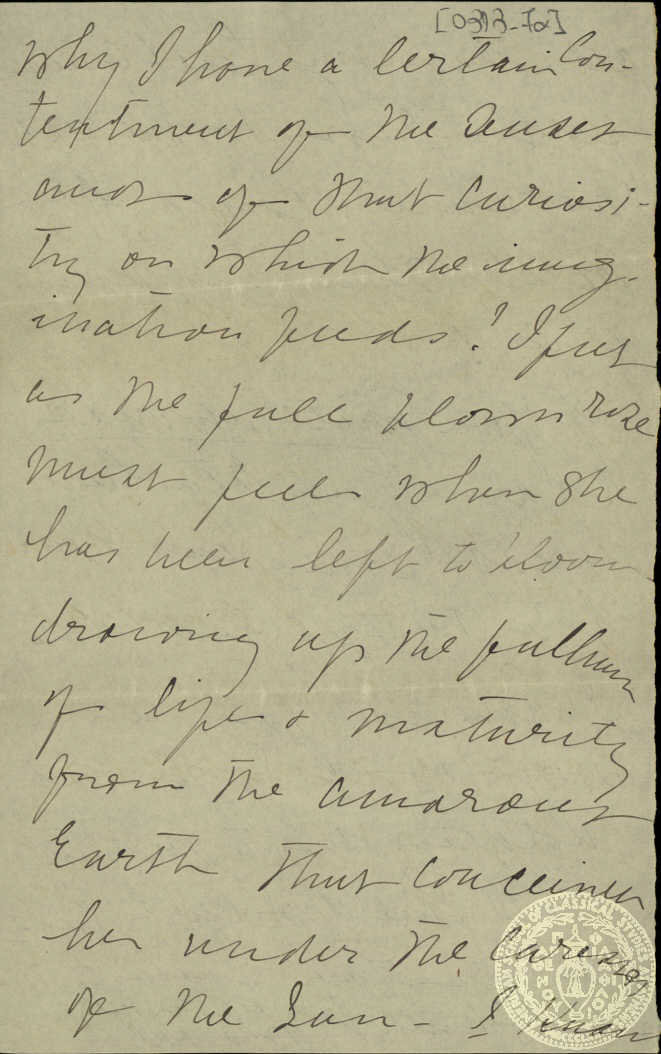 [0393-7a]
why I have a certain con-
tentment of the senses
and of that curiosi-
ty on which the imag-
ination feeds! I feel
as the full blown rose
must feel when she
has been left to bloom
drawing up the fullness
of life & maturity
from the amorous
Earth that conceives
her under the caresses
of the Sun - I know
OF CLASSICAL STUDIES